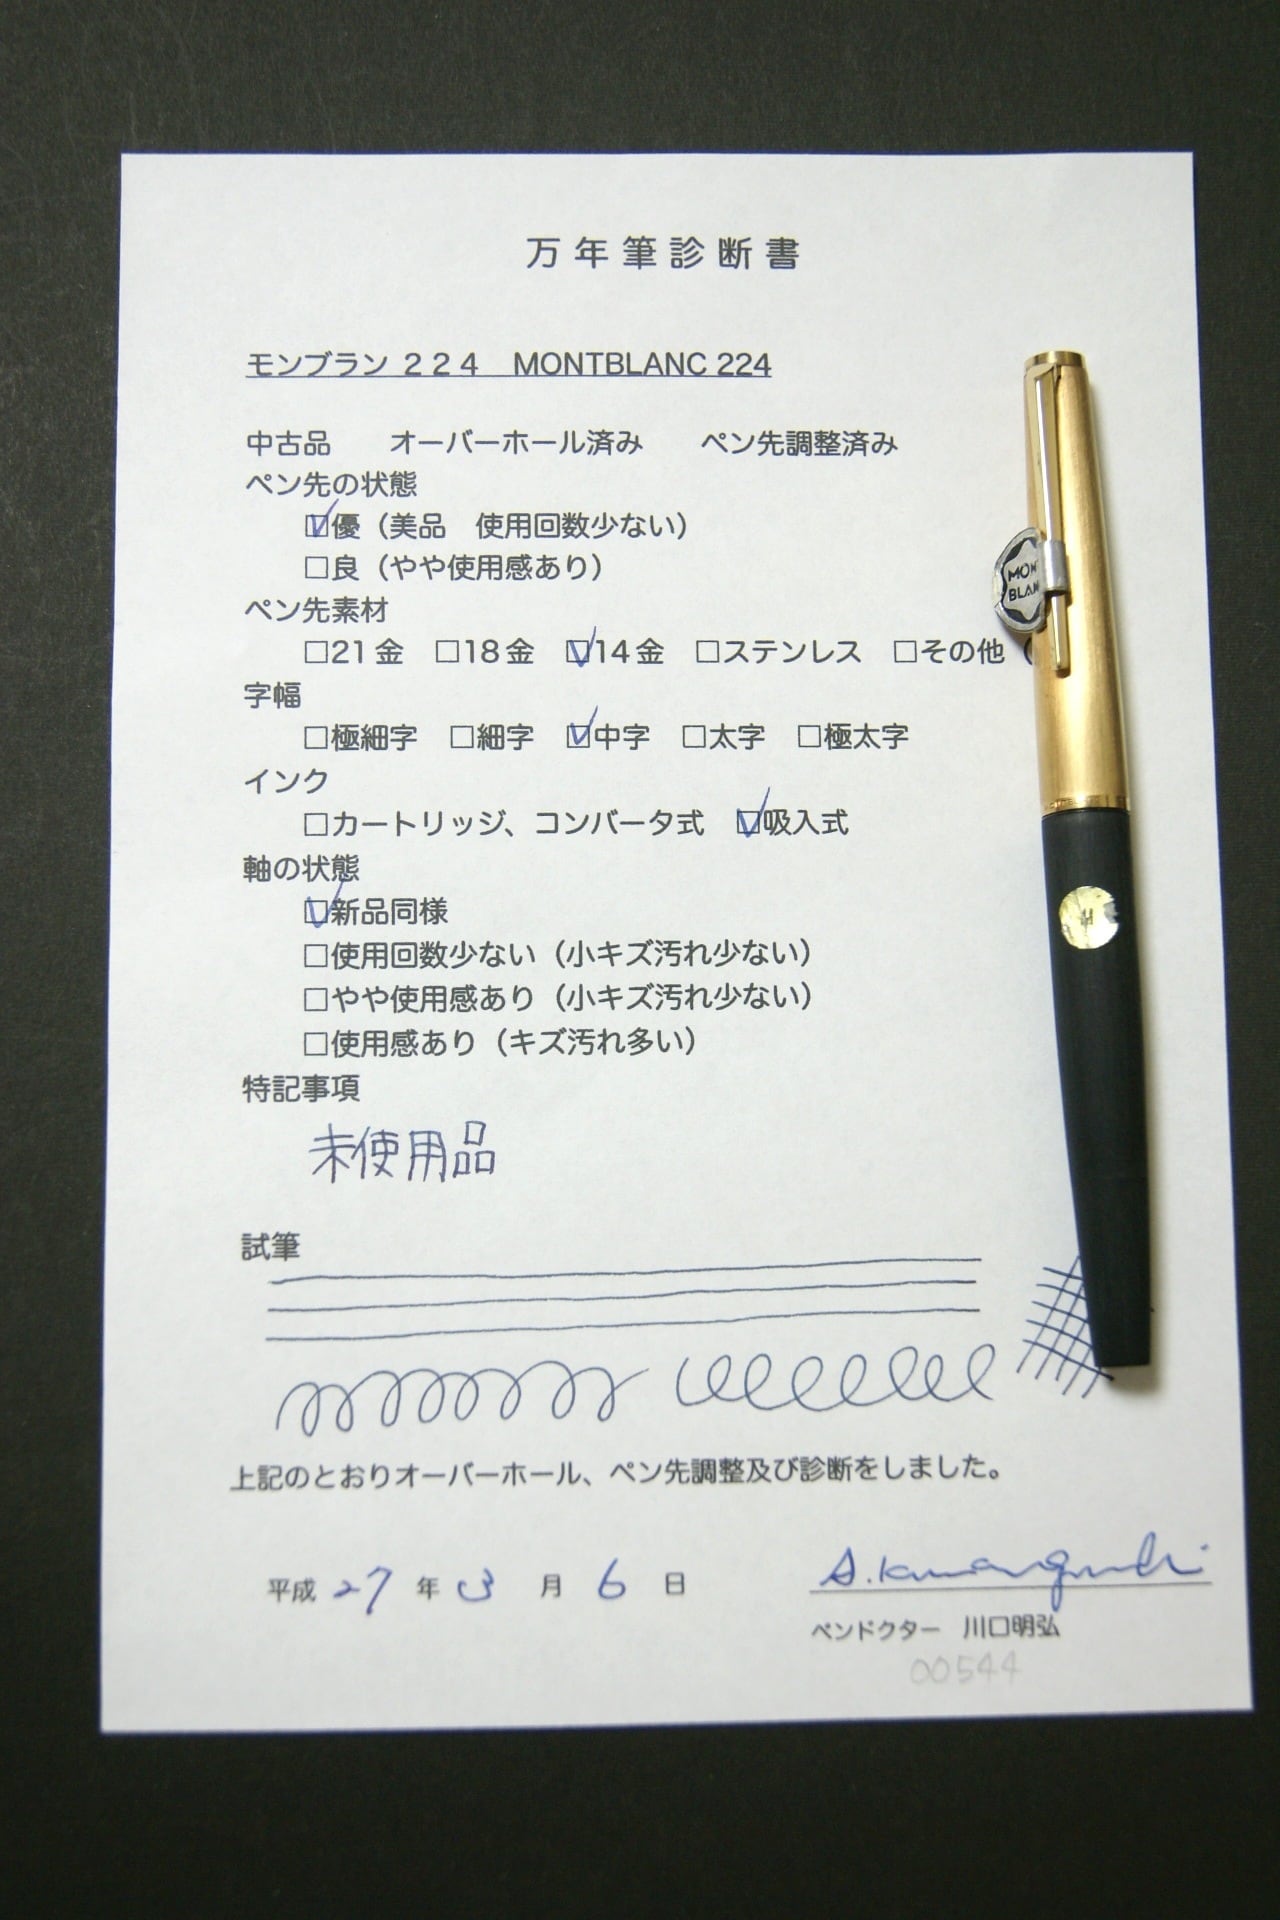 万年筆診断書
モンブラン 224 MONTBLANC 224
中古品 オーバーホール済み ペン先調整済み
ペン先の状態
☑優（美品 使用回数少ない）
□良（やや使用感あり）
ペン先素材
□21金 □18金 ☑14金 □ステンレス □その他（
字幅
□極細字 □細字 ☑中字 □太字 □極太字
インク
□カートリッジ、コンバータ式 ☑吸入式
軸の状態
☑新品同様
□使用回数少ない（小キズ汚れ少ない）
□やや使用感あり（小キズ汚れ少ない）
□使用感あり（キズ汚れ多い）
特記事項
未使用品
試筆
上記のとおりオーバーホール、ペン先調整及び診断をしました。
平成 27 年 3 月 6 日
A. Kawaguchi
ペンドクター 川口明弘
00544
MON
BLAN
M